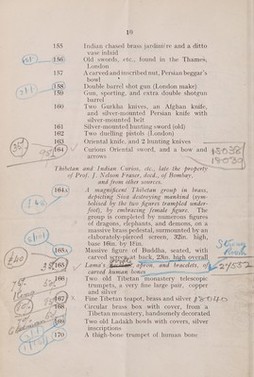 10
155 Indian chased brass jardinière and a ditto
vase inlaid
156 Old swords, etc., found in the Thames,
London
157 A carved and inscribed nut, Persian beggar's
bowl
158 Double barrel shot gun (London make)
159 Gun, sporting, and extra double shotgun
barrel
160 Two Gurkha knives, an Afghan knife,
and silver-mounted Persian knife with
silver-mounted belt
161 Silver-mounted hunting sword (old)
162 Two duelling pistols (London)
163 Oriental knife, and 2 hunting knives
164 Curious Oriental sword, and a bow and
arrows
18038
18039
Thibetan and Indian Curios, etc., late the property
of Prof. J. Nelson Fraser, decd., of Bombay,
and from other sources.
164A A magnificent Thibetan group in brass,
depicting Siva destroying mankind (sym-
bolised by the two figures trampled under-
foot), by embracing female figure. The
group is completed by numerous figures
of dragons, elephants, and demons, on a
massive brass pedestal, surmounted by an
elaborately-pierced screen, 32in. high,
base 16in. by 11in.
165A Massive figure of Buddha, seated, with
carved screen at back, 23in. high overall
165 Lama's apron, and bracelets, of
carved human bones
24552
166 Two old Tibetan monastery telescopic
trumpets, a very fine large pair, copper
and silver
167 Fine Tibetan teapot, brass and silver 18040
168 Circular brass box with cover, from a
Tibetan monastery, handsomely decorated
169 Two old Ladakh bowls with covers, silver
inscriptions
170 A thigh-bone trumpet of human bone